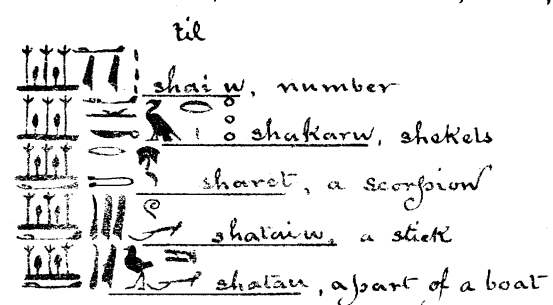 til
shaiu, number
shakaru, shekels
sharet, a scorpion
shataiu, a stick
shatau, a part of a boat